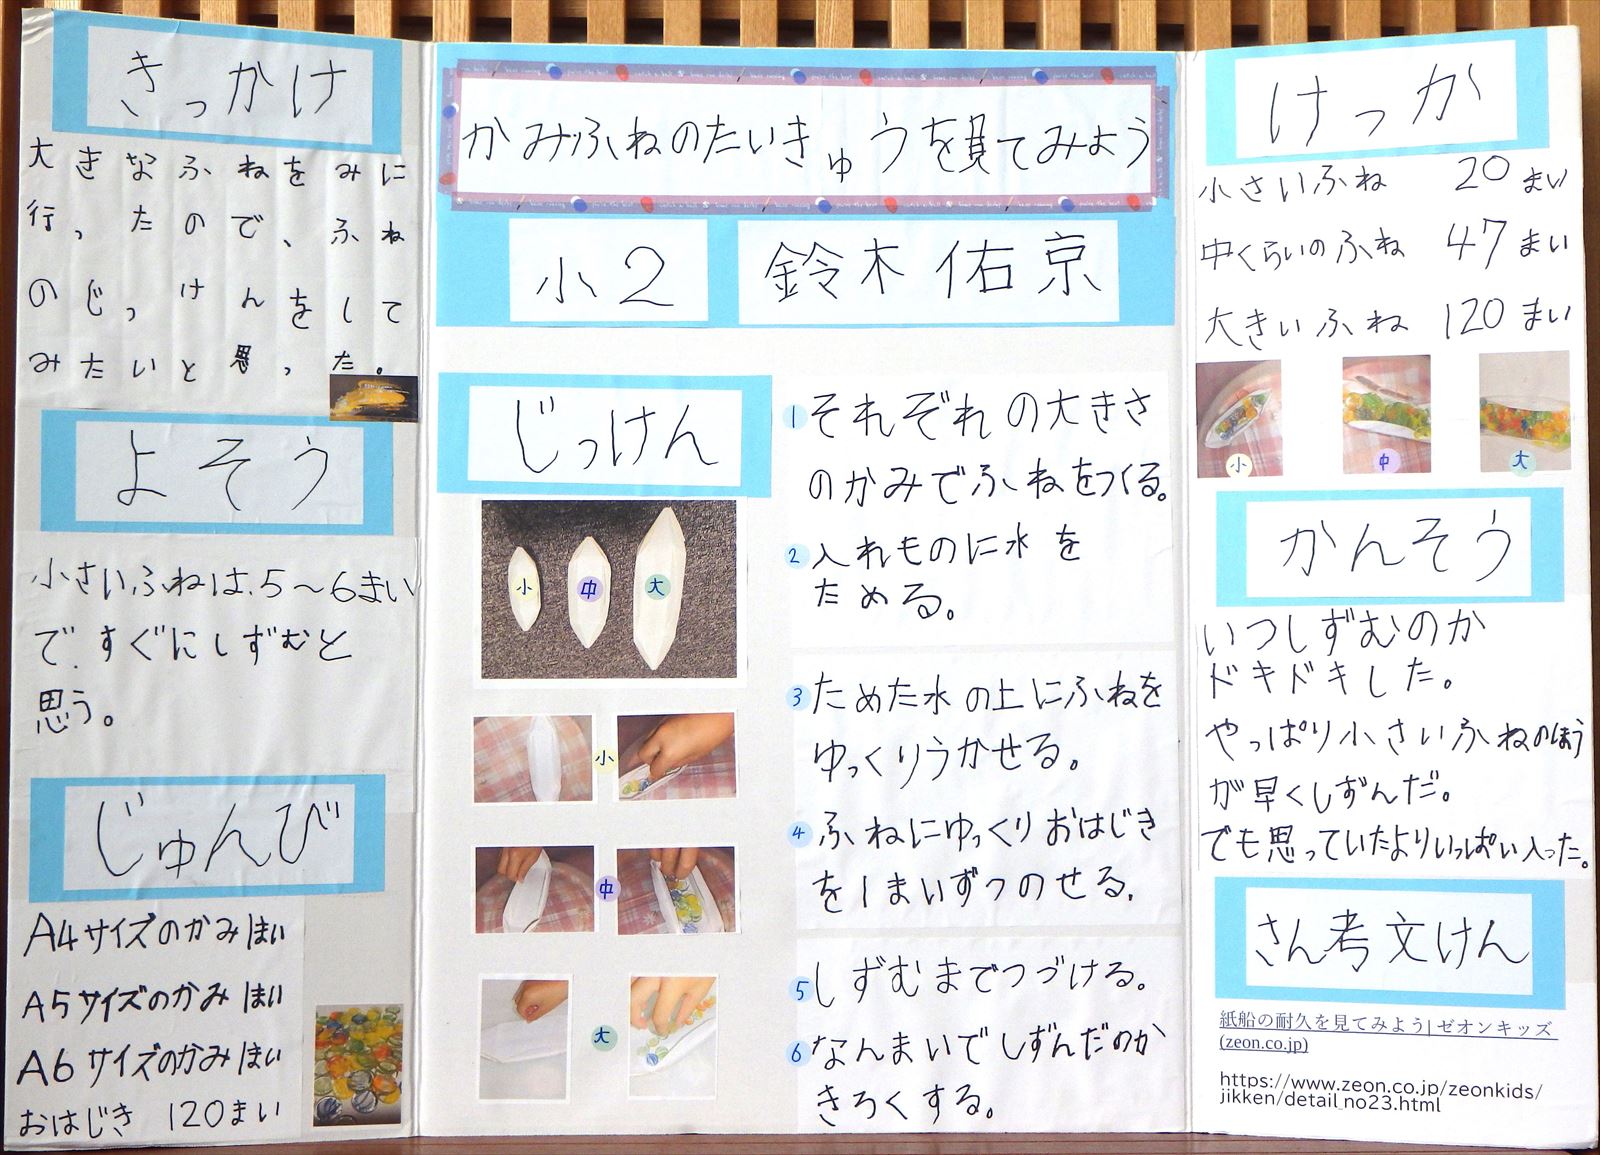 かみふねのたいきゅうを見てみよう
小2
鈴木 佑京
きっかけ
大きなふねをみに
行ったので、ふね
のじっけんをして
みたいと思った。
よそう
小さいふねは、5〜6まい
で、すぐにしずむと
思う。
じゅんび
A4サイズのかみ1まい
A5サイズのかみ1まい
A6サイズのかみ1まい
おはじき 120まい
じっけん
小
中
大
小
中
大
1 それぞれの大きさ
のかみでふねをつくる。
2 入れものに水を
ためる。
3 ためた水の上にふねを
ゆっくりうかせる。
4 ふねにゆっくりおはじき
を1まいずつのせる。
5 しずむまでつづける。
6 なんまいでしずんだのか
きろくする。
けっか
小さいふね 20まい
中くらいのふね 47まい
大きいふね 120まい
小
中
大
かんそう
いつしずむのか
ドキドキした。
やっぱり小さいふねのほう
が早くしずんだ。
でも思っていたよりいっぱい入った。
さん考文けん
紙船の耐久を見てみよう| ゼオンキッズ
(zeon.co.jp)
https://www.zeon.co.jp/zeonkids/
jikken/detail_no23.html